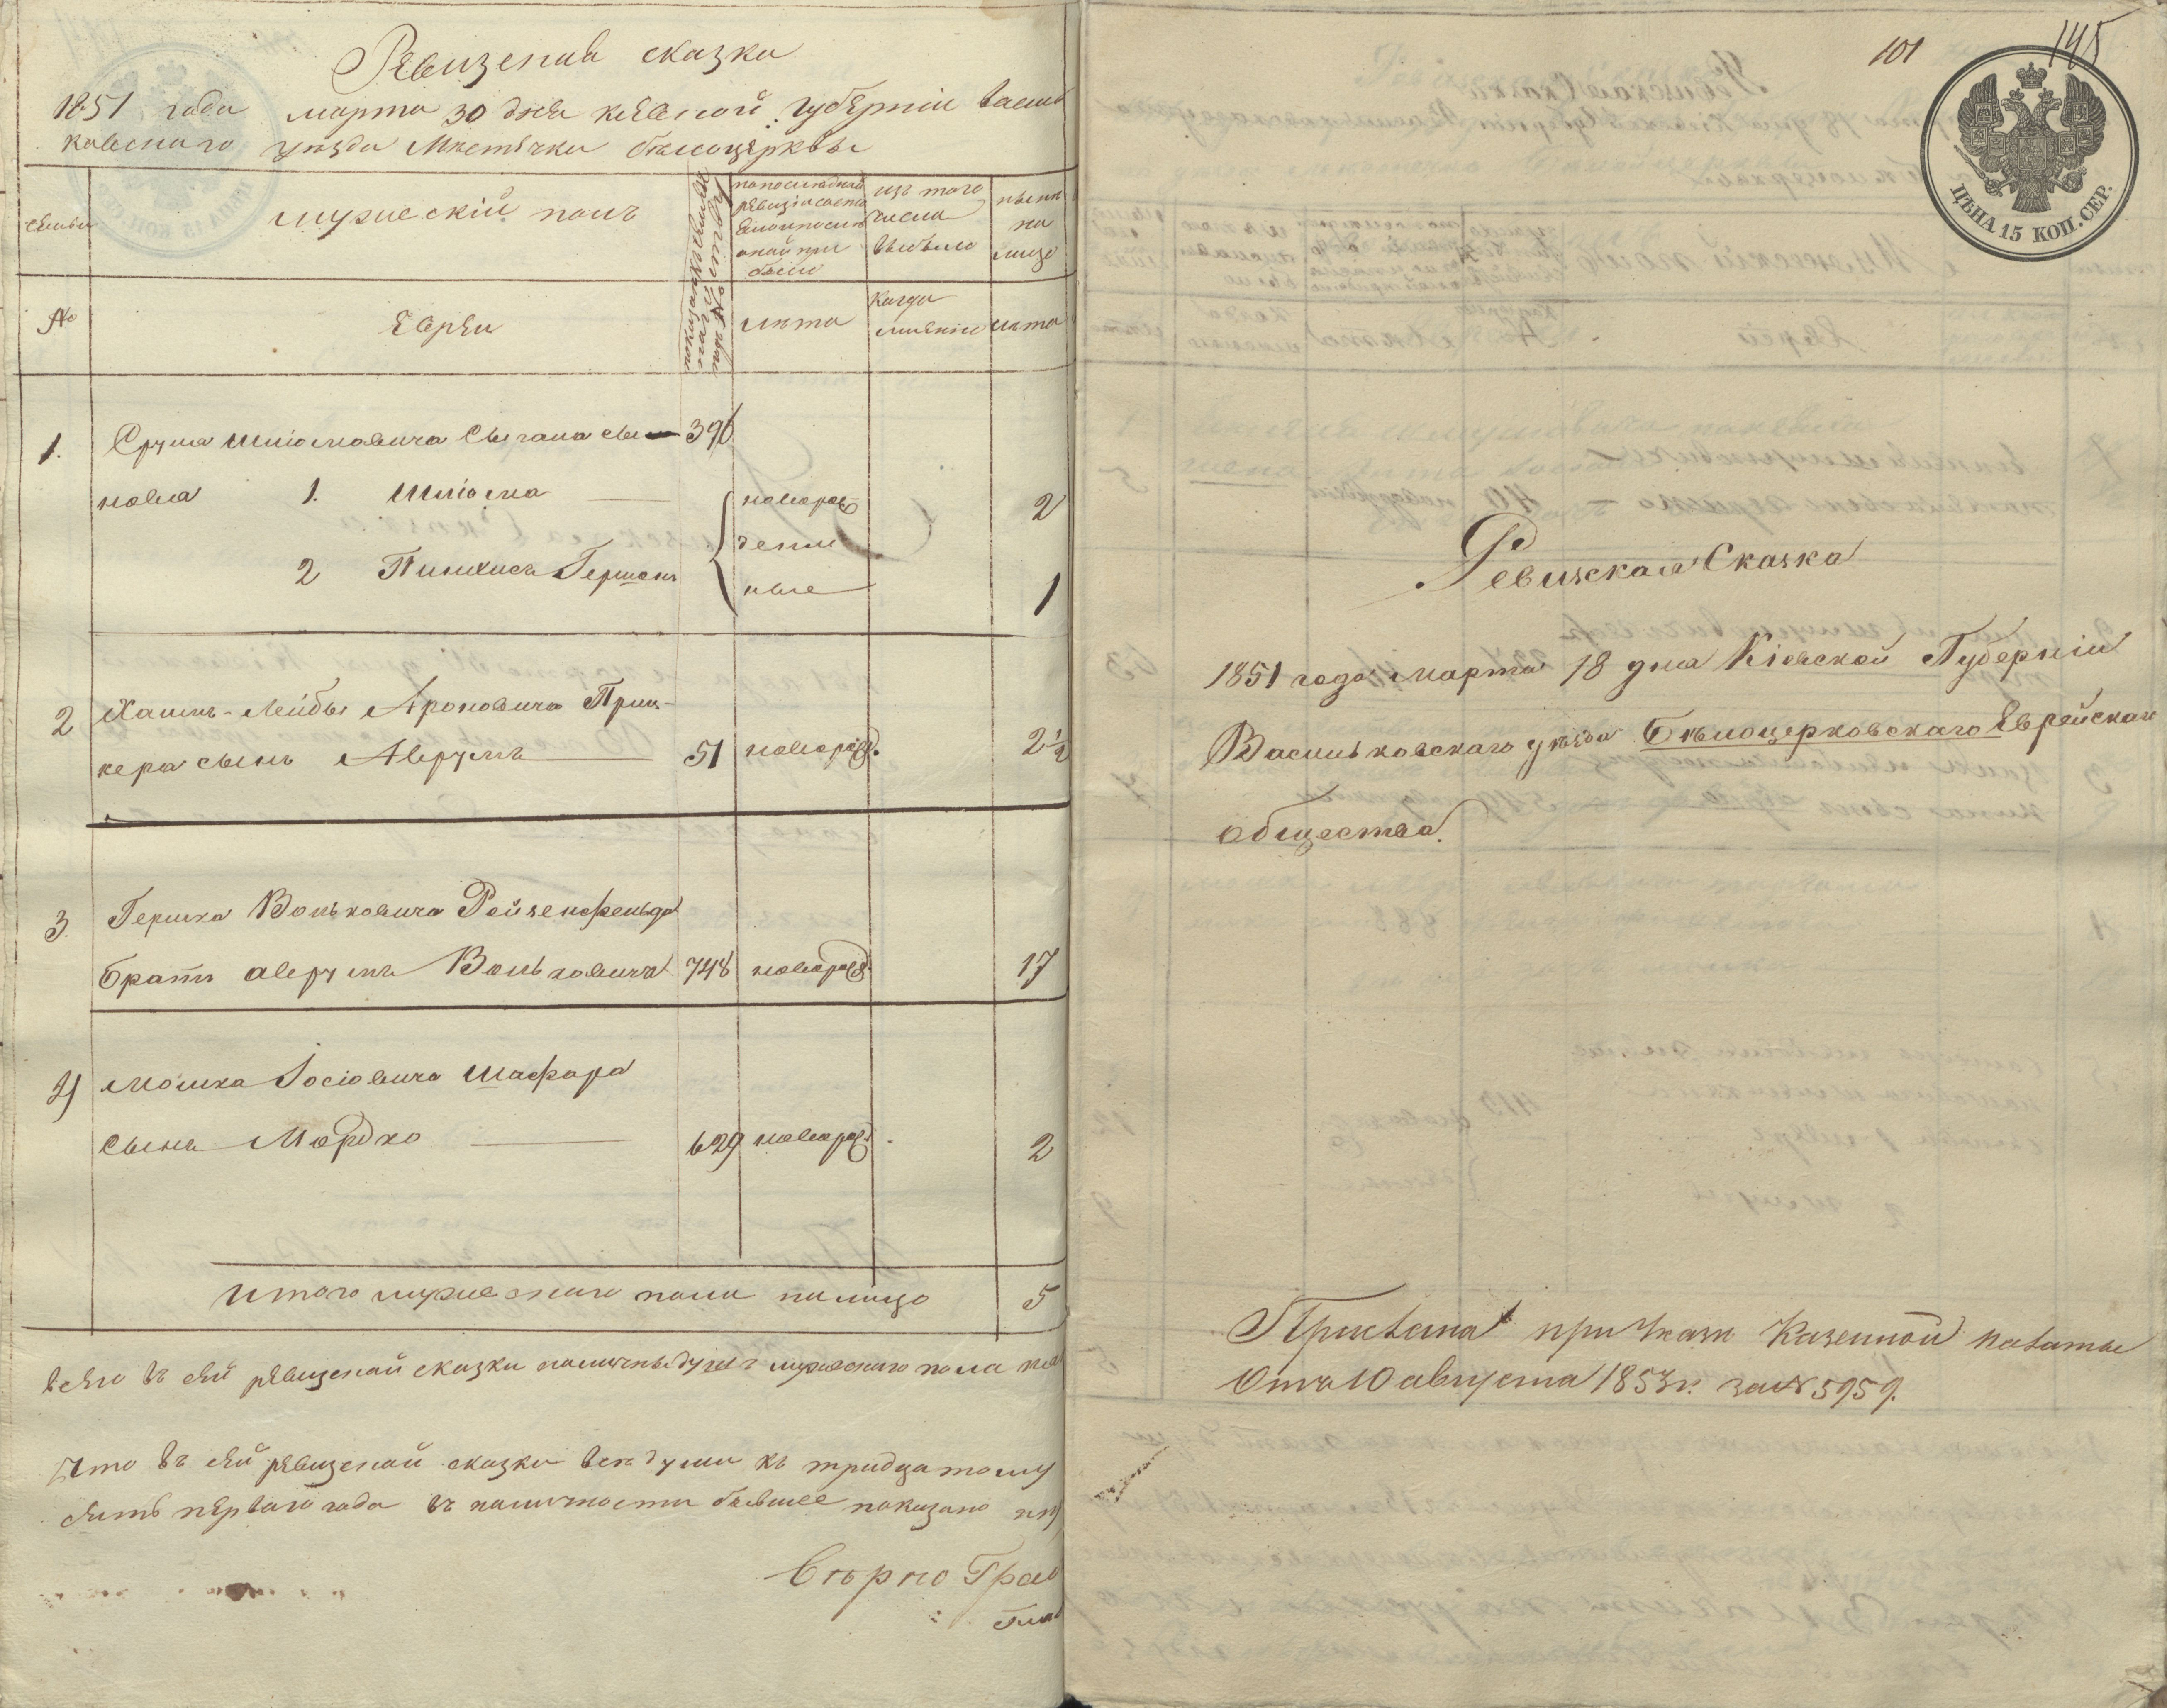 Ревизская сказка
1851 года марта 30 дня киевской губернии василь
ковскаго уезда Мѣстечка белоцерквы
семьи
мужескій полъ
по последней
ревизіи состо
яло и после
оной при
было
изъ того
числа
выбыло
ныне
на
лицо
№
Евреи
лета
когда
именно
лета
1. Сруля Шліомовича Цыгана сы 396
новья 1. Шліома новорож 2
денны
2 Пинхасъ Гершонъ ные 1
2 Хаимъ-Лейбы Ароновича Приц-
кера сынъ Аврумъ 51 новорожд. 2½
3. Гершка Вольковича Рейзенфельда
братъ аврумъ Вольковичъ 748 новорожд. 17
4 Мошка Іосіовича Шафара
сынъ Мордко 629 новорожд. 2
Итого мужескаго пола налицо 5
всего въ сей ревизской сказки наличныхъ душъ мужескаго пола
Что въ сей ревизской сказки все души къ тридцатому
сятъ перваго года въ наличности бывшее показано
Верно
101
145
ЦѢНА 15 КОП. СЕР.
Ревизская Сказка
1851 года марта 18 дня Кіевской Губерніи
Васильковскаго уѣзда Бѣлоцерковскаго Еврейскаго
общества.
Прислана при Указе Казенной палаты
Отъ 10 августа 1853 г. за № 5959.